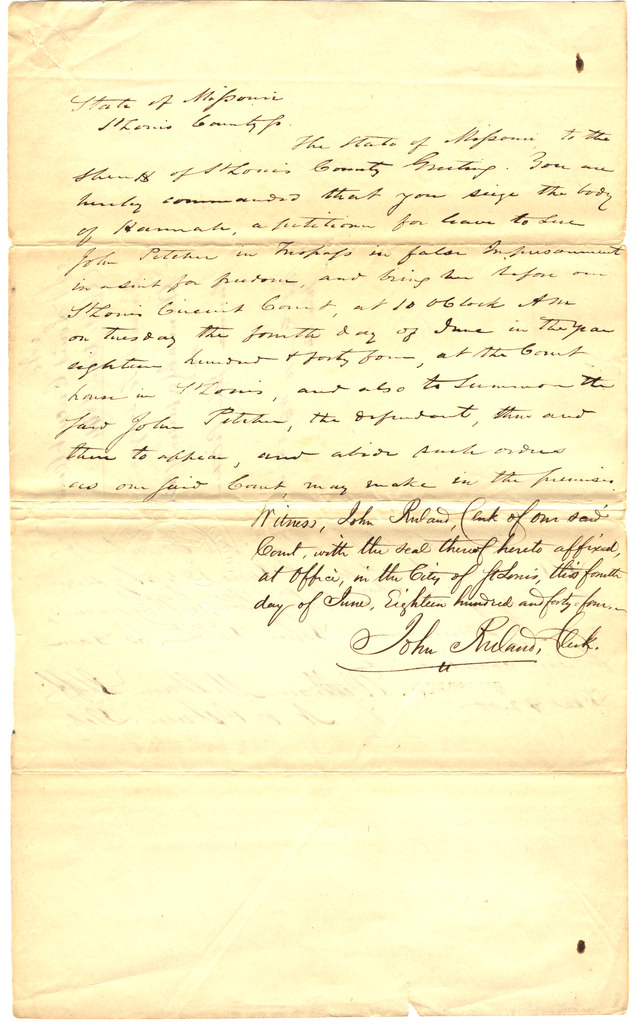 State of Missouri
St Louis County ss.
The State of Missouri, to the
Sheriff of St Louis County Greeting. You are
hereby commanded that you seize the body
of Hannah, a petitioner for leave to sue
John Pitcher in Trespass in false Imprisonment
in a suit for freedom, and bring her before our
St Louis Circuit Court, at 10 O'Clock AM
on tuesday the fourth day of June in the year
eighteen hundred & forty four, at the Court
house in St Louis, and also to Summon the
said John Pitcher, the defendant, then and
there to appear, and abide such orders
as our said Court, may make in the premises.
Witness, John Ruland, Clerk of our said
Court, with the seal thereof hereto affixed,
at Office, in the City of St Louis, this fourth
day of June, Eighteen hundred and forty-four.
John Ruland, Clerk.